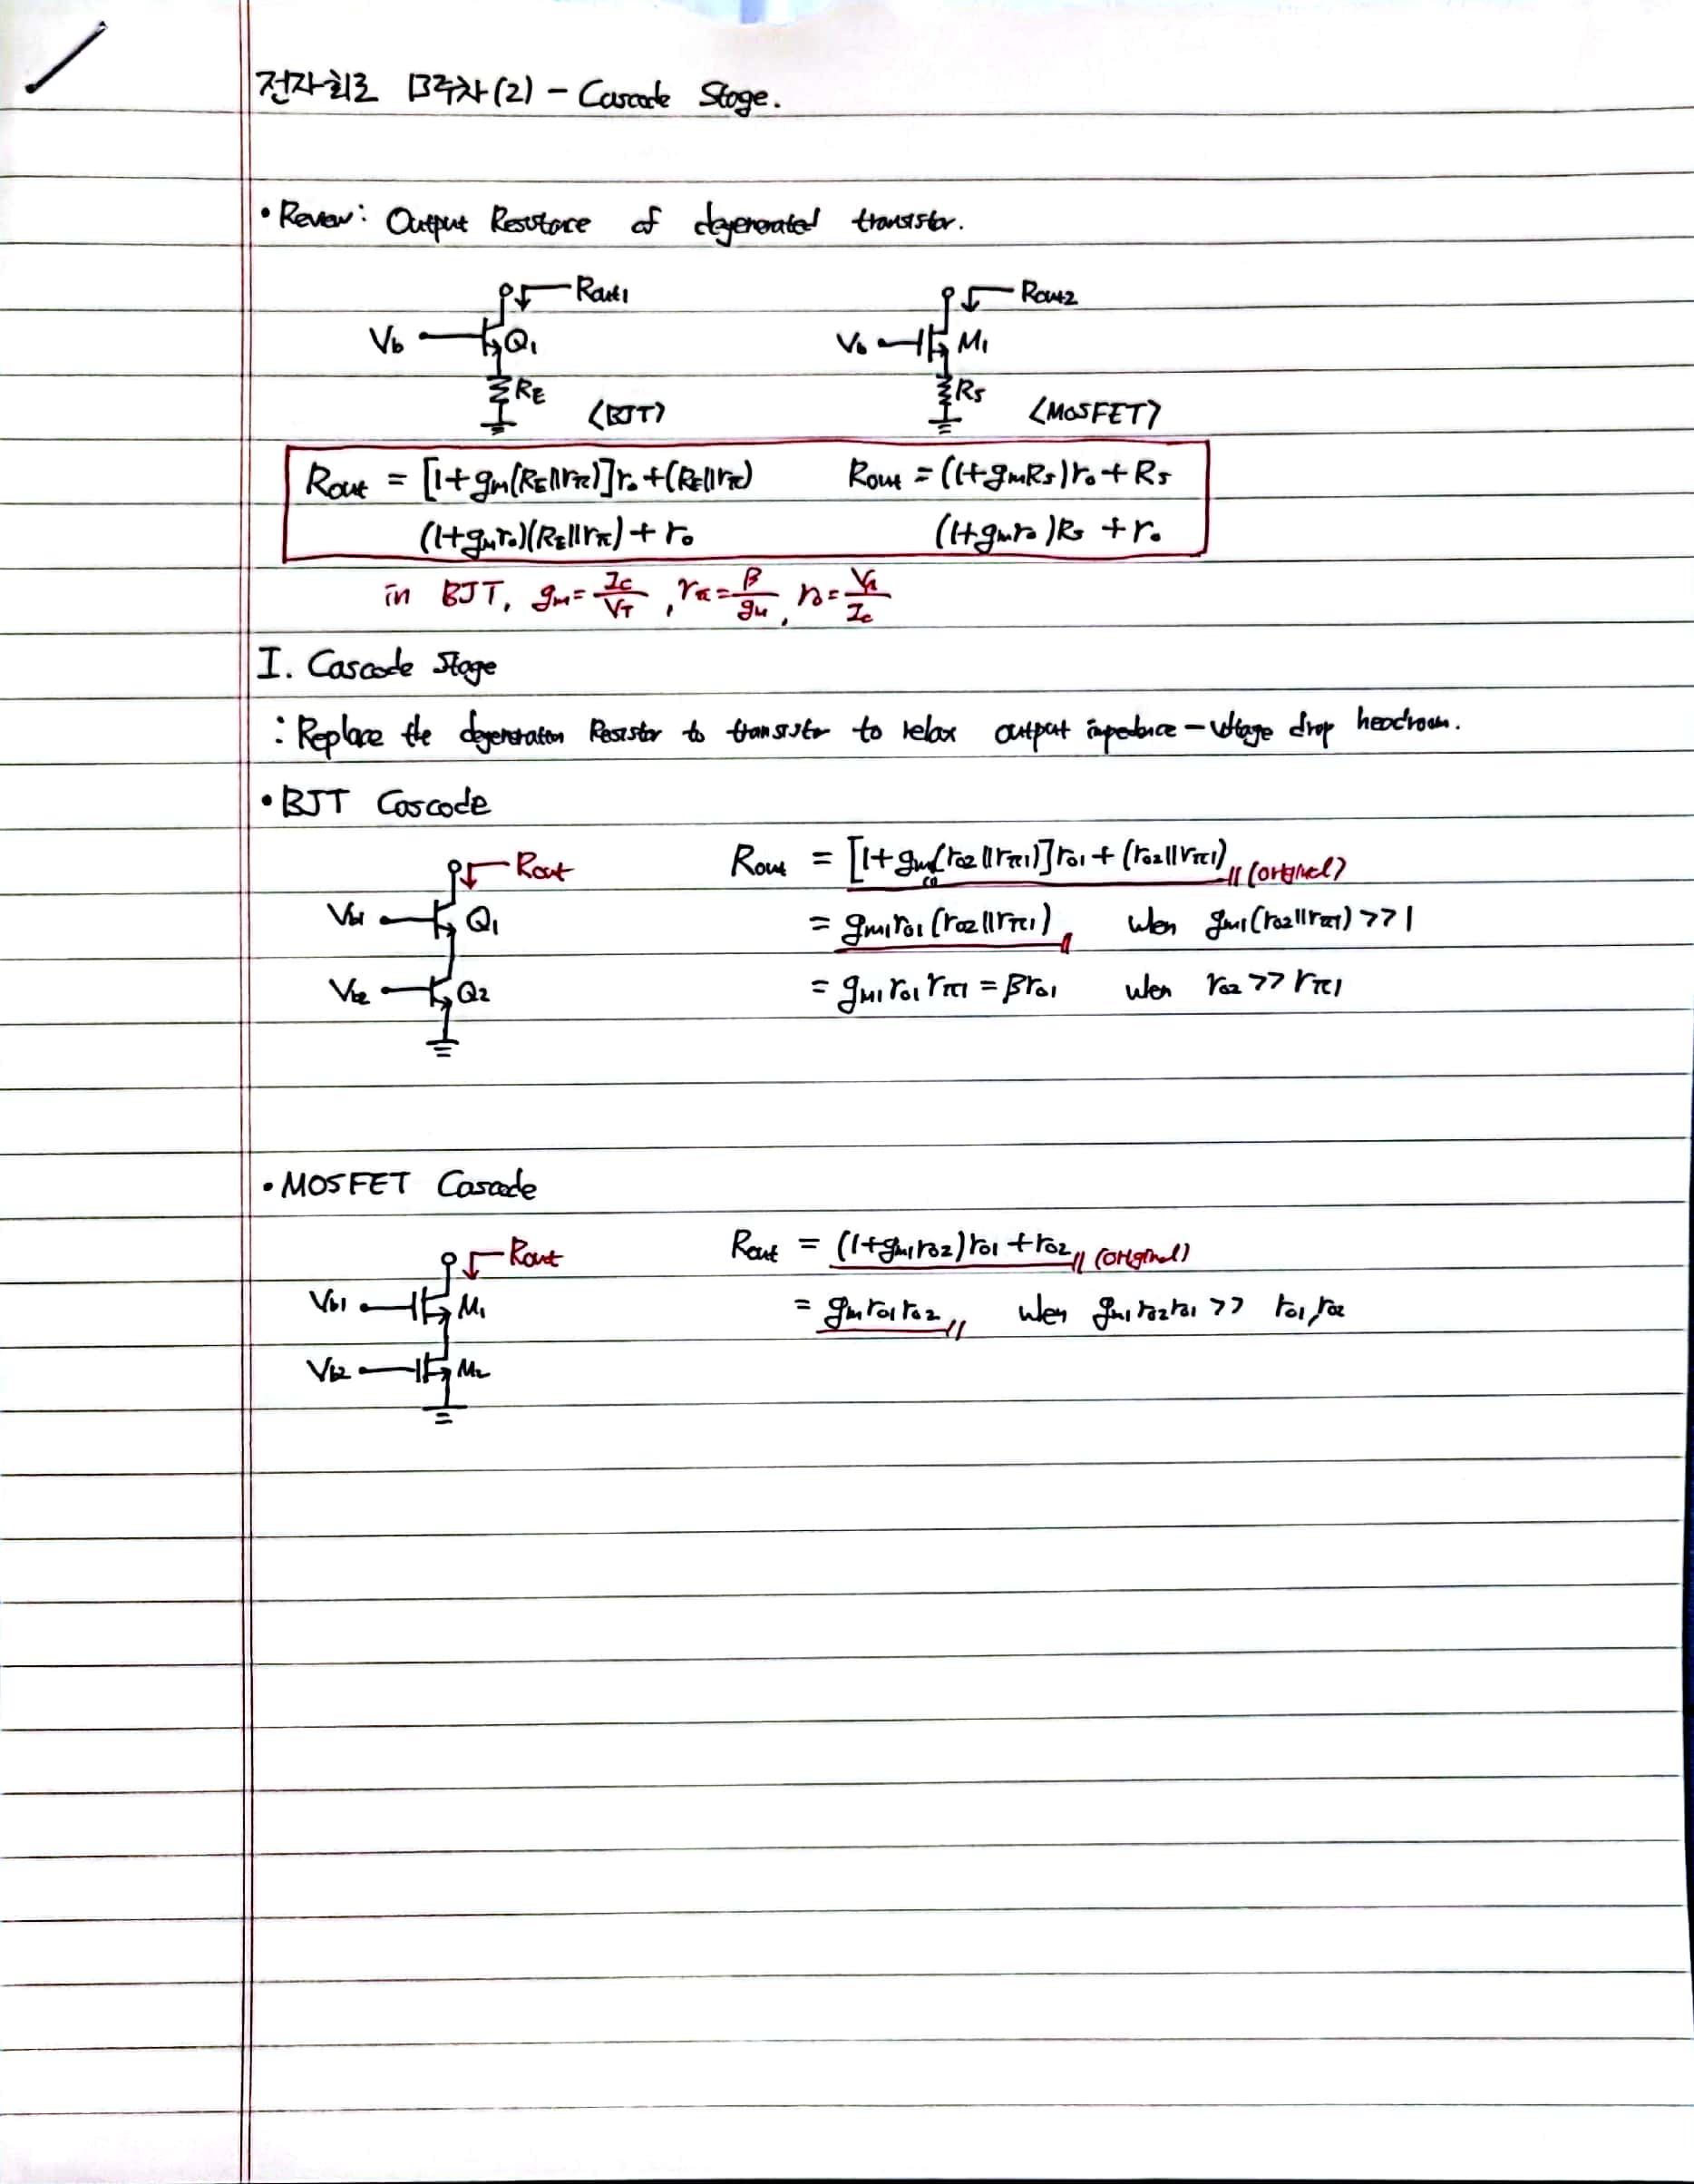 전자회로 13주차(2) - Cascode Stage.
• Review: Output Resistance of degenerated transistor.
Rout1
Rout2
Vb
Q1
Vb
M1
RE
<BJT>
RS
<MOSFET>
Rout = [1+gm(RE||rπ)]ro+(RE||rπ)
Rout = (1+gmRS)ro+RS
(1+gmro)(RE||rπ)+ro
(1+gmro)RS +ro
in BJT, gm=IC/VT, rπ=β/gm, ro=VA/IC
I. Cascode Stage
: Replace the degeneration Resistor to transistor to relax output impedance - Voltage drop headroom.
• BJT Cascode
Rout
Rout = [1+gm1(ro2||rπ1)]ro1+(ro2||rπ1) // (original)
Vb1
Q1
= gm1ro1(ro2||rπ1) // wen gm1(ro2||rπ1)>>1
Vb2
Q2
= gm1ro1rπ1 = βro1 wen ro2>>rπ1
• MOSFET Cascode
Rout
Rout = (1+gm1ro2)ro1+ro2 // (original)
Vb1
M1
= gmro1ro2 // wen gm1ro2ro1 >> ro1,ro2
Vb2
M2